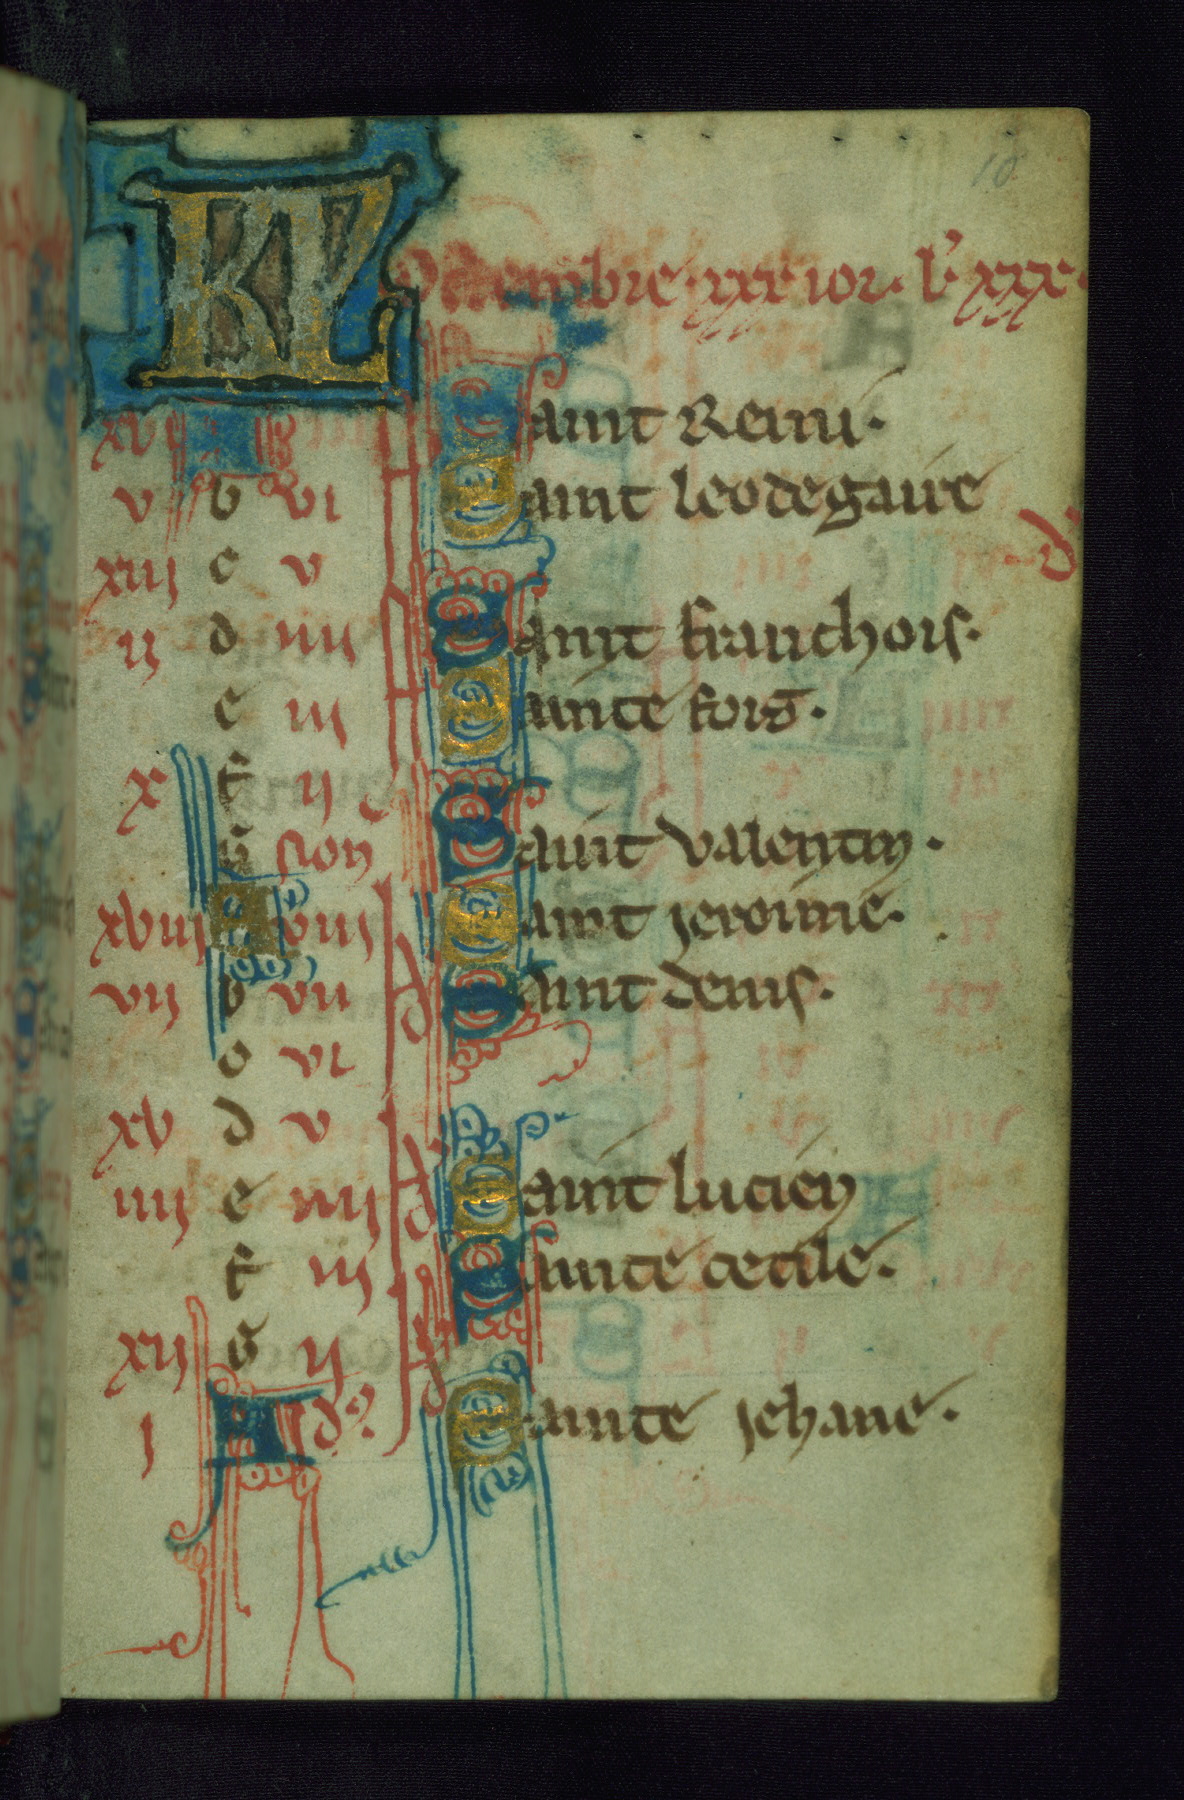 10
KL Octembre · xxxi ior · lĩ xxx ·
xvi A Saint Remi ·
v b vi Saint leodegaire
xiij c v
d'
ij d iiij Saint franchois ·
e iij Sainte foiz ·
x f ij
g non Saint valentin ·
xviij A viij Saint jeroime ·
vij b vii Saint denis ·
c vi
xv d v
iiij e iiij Saint lucien
f iij Sainte cecile ·
xij g ij
j A Sainte jehane ·